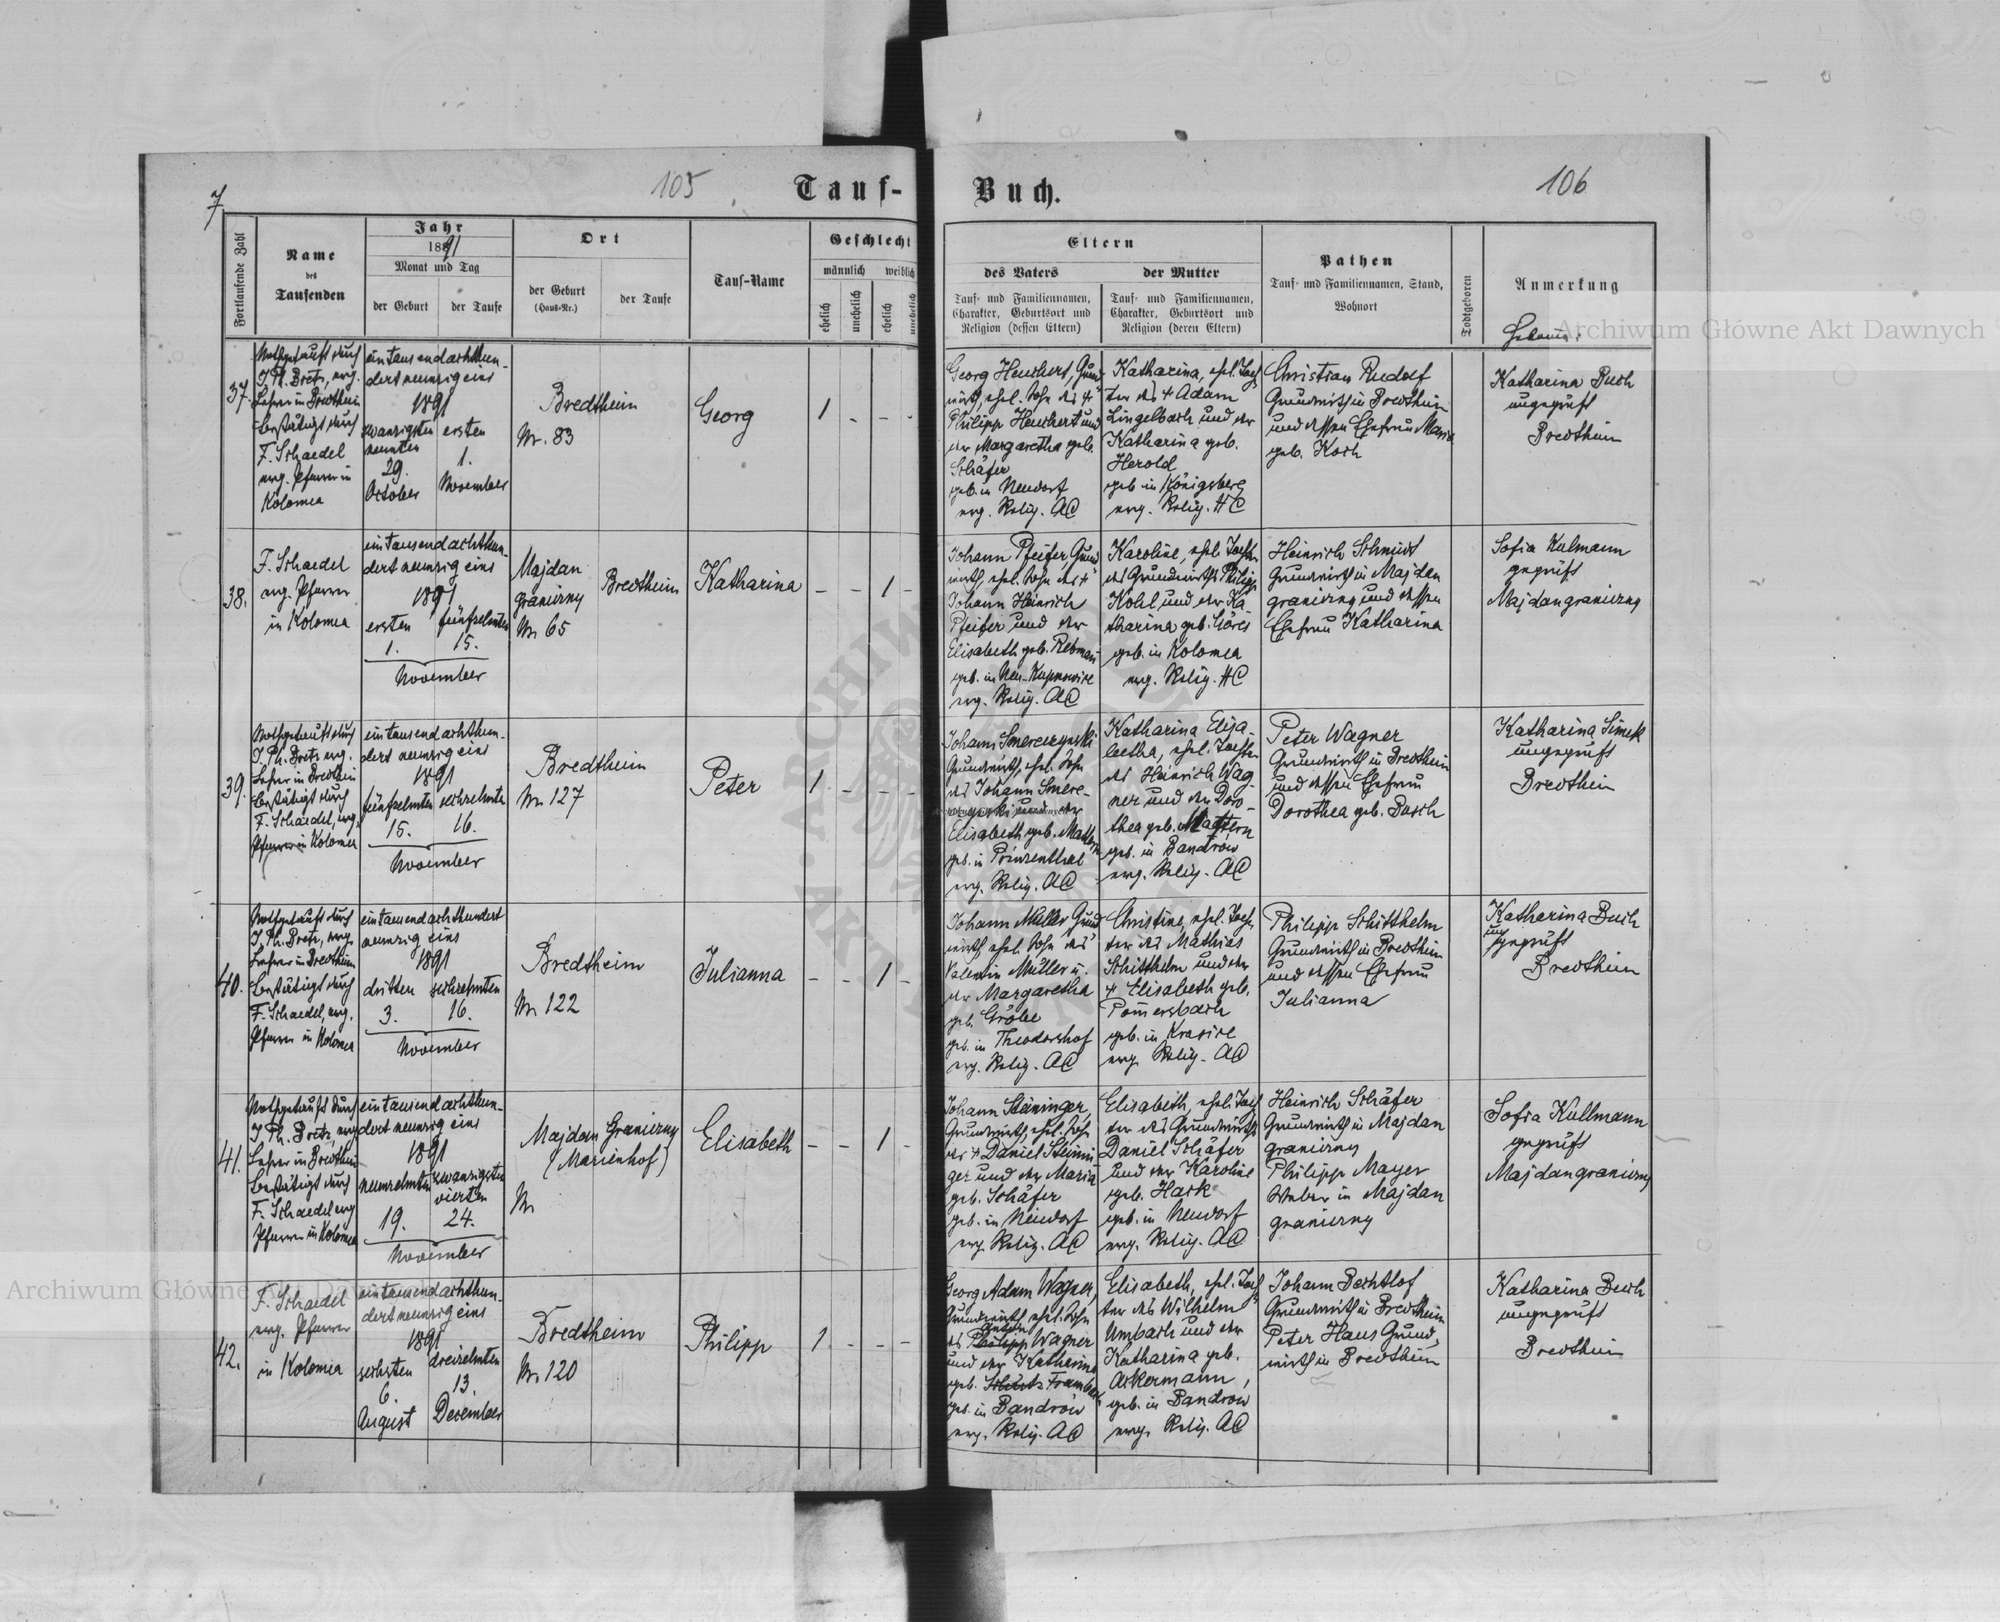 7
105
Tauf-
Buch.
106
Fortlaufende Zahl
Name
des
Taufenden
Jahr
1891
Monat und Tag
der Geburt
der Taufe
Ort
der Geburt
(Haus-Nr.)
der Taufe
Tauf-Name
Geschlecht
männlich
weiblich
ehelich
unehelich
ehelich
unehelich
Eltern
des Vaters
Tauf- und Familiennamen,
Charakter, Geburtsort und
Religion (dessen Eltern)
der Mutter
Tauf- und Familiennamen,
Charakter, Geburtsort und
Religion (deren Eltern)
Pathen
Tauf- und Familiennamen, Stand,
Wohnort
Todtgeboren
Anmerkung
Hebamme
37.
Nothgetauft durch
J. Ph. Bretz, evg.
Lehrer in Bredtheim
bestätigt durch
F. Schaedel
evg. Pfarrer in
Kolomea
eintausendachthun-
dertneunzigeins
1891
zwanzigsten
neunten
29.
October
ersten
1.
November
Bredtheim
Nr. 83
Georg
1 - - -
Georg Heuchert, Grund
wirth, ehel. Sohn des †
Philipp Heuchert und
der Margaretha geb.
Schäfer
geb. in Neudorf
evg. Relig. AC
Katharina, ehel. Toch
ter des † Adam
Lingelbach und der
Katharina geb.
Herold
geb in Königsberg
evg. Relig. HC
Christian Rudolf
Grundwirth in Bredtheim
und dessen Ehefrau Maria
geb. Koch
Katharina Buch
ungeprüft
Bredtheim
38.
F. Schaedel
evg. Pfarrer
in Kolomea
eintausendachthun-
dertneunzigeins
1891
ersten
1.
fünfzehnten
15.
November
Majdan
graniczny
Nr. 65
Bredtheim
Katharina
- - 1 -
Johann Pfeifer, Grund
wirth, ehel. Sohn des †
Johann Heinrich
Pfeifer und der
Elisabeth geb. Rebman
geb. in Neu-Kupnowice
evg. Relig. AC
Karoline, ehel. Tochter
des Grundwirths Philipp
Kohl und der Ka-
tharina geb. Göres
geb. in Kolomea
evg. Relig. HC
Heinrich Schmidt
Grundwirth in Majdan
graniczny und dessen
Ehefrau Katharina
Sofia Kulmann
geprüft
Majdan graniczny
39.
Nothgetauft durch
J. Ph. Bretz evg.
Lehrer in Bredtheim
bestätigt durch
F. Schaedel, evg.
Pfarrer in Kolomea
eintausendachthun-
dertneunzigeins
1891
fünfzehnten
15.
sechzehnten
16.
November
Bredtheim
Nr. 127
Peter
1 - - -
Johann Smereczynski
Grundwirth, ehel. Sohn
des Johann Smere-
czynski und der
Elisabeth geb. Mattern
geb. in Prinzenthal
evg. Relig. AC
Katharina Elisa-
betha, ehel. Tochter
des Heinrich Wag-
ner und der Doro-
thea geb. Mattern
geb. in Bandrów
evg. Relig. AC
Peter Wagner
Grundwirth in Bredtheim
und dessen Ehefrau
Dorothea geb. Busch
Katharina Simek
ungeprüft
Bredtheim
40.
Nothgetauft durch
J. Ph. Bretz, evg.
Lehrer in Bredtheim
bestätigt durch
F. Schaedel, evg.
Pfarrer in Kolomea
eintausendachthundert
neunzig eins
1891
dritten
3.
sechzehnten
16.
November
Bredtheim
Nr. 122
Julianna
- - 1 -
Johann Müller Grund
wirth, ehel. Sohn des
Valentin Müller u.
der Margaretha
geb. Gröbe
geb. in Theodorshof
evg. Relig. AC
Christine, ehel. Toch-
ter des Mathias
Schitthelm und der
† Elisabeth geb.
Pomersbach
geb. in Krasice
evg. Relig. AC
Philipp Schitthelm
Grundwirth in Bredtheim
und dessen Ehefrau
Julianna
Katharina Buch
ungeprüft
Bredtheim
41.
Nothgetauft durch
J. Ph. Bretz, evg
Lehrer in Bredtheim
bestätigt durch
F. Schaedel evg
Pfarrer in Kolomea
eintausendachthun-
dertneunzigeins
1891
neunzehnten
19.
zwanzigsten
vierten
24.
November
Majdan Graniczny
(Marienhof)
Nr.
Elisabeth
- - 1 -
Johann Steininger,
Grundwirth, ehel. Sohn
des † Daniel Steinin
ger und der Maria
geb. Schäfer
geb. in Neudorf
evg. Relig. AC
Elisabeth, ehel. Toch
ter des Grundwirths
Daniel Schäfer
und der Karoline
geb. Hack
geb. in Neudorf
evg. Relig. AC
Heinrich Schäfer
Grundwirth in Majdan
graniczny
Philipp Mayer
Weber in Majdan
graniczny
Sofia Kullmann
geprüft
Majdan graniczny
42.
F. Schaedel
evg. Pfarrer
in Kolomea
eintausendachthun-
dertneunzigeins
1891
sechsten
6.
August
dreizehnten
13.
December
Bredtheim
Nr. 120
Philipp
1 - - -
Georg Adam Wagner,
Grundwirth, ehel. Sohn
des Philipp Wagner
und der Katharina
geb. Schütz Frambach
geb. in Bandrów
evg. Relig. AC
Elisabeth, ehel. Toch
ter des Wilhelm
Umbach und der
Katharina geb.
Ackermann,
geb. in Bandrów
evg. Relig. AC
Johann Bechtlof
Grundwirth in Bredtheim
Peter Haus Grund,
wirth in Bredtheim
Katharina Buch
ungeprüft
Bredtheim
Archiwum Główne Akt Dawnych
Archiwum Główne Akt Dawnych